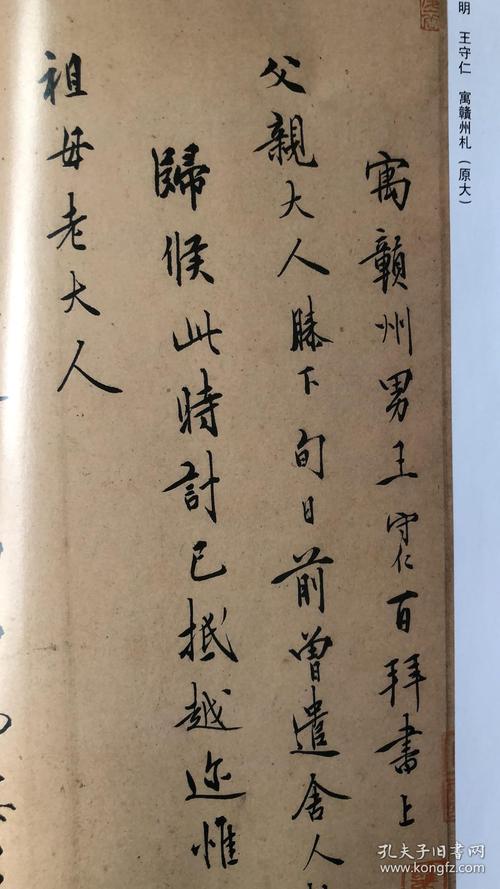 明 王守仁 寓贛州札（原大）
寓贛州男王守仁百拜書上
父親大人膝下旬日前曾遣舍人
歸候此時計已抵越邇惟
祖母老大人
孔夫子旧书网
www.kongfz.com